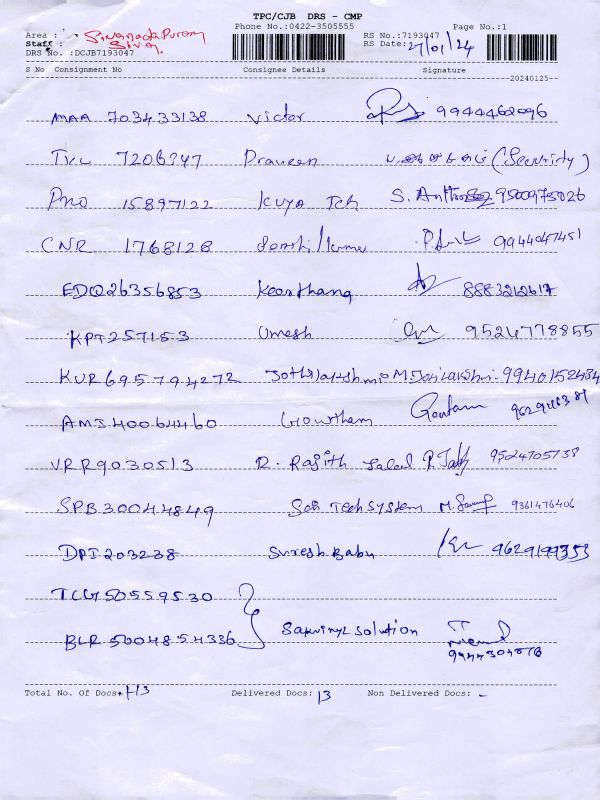 TPC/CJB DRS - CMP
Phone No.:0422-3505555 Page No.:1
Area : Sivanandapuram RS No.:7193047
Staff : Siva RS Date: 27/01/24
DRS No. :DCJB7193047
S No Consignment No Consignee Details Signature
20240125
MAA 703433138 Victor 9944462096
TVL 7206347 Praveen (Security)
PNO 15897122 Kuya Tch S. Anthony 9500975026
CNR 1768128 9944047451
EDQ26356853 Keerthana 8883212617
KPT257153 Umesh 9524778855
KUR695794272 Jothilakshmi M. Jothilakshmi 9940152484
AMI40064460 Gowtham Goutam
VRR9030513 R. Rajith 9524705738
SPB30044849 Tech System 9361476406
DPI203238 Suresh Babu 9629199353
TCG150559530
BLR5004854336 solution
9944304078
Total No. Of Docs: 13 Delivered Docs: 13 Non Delivered Docs: -